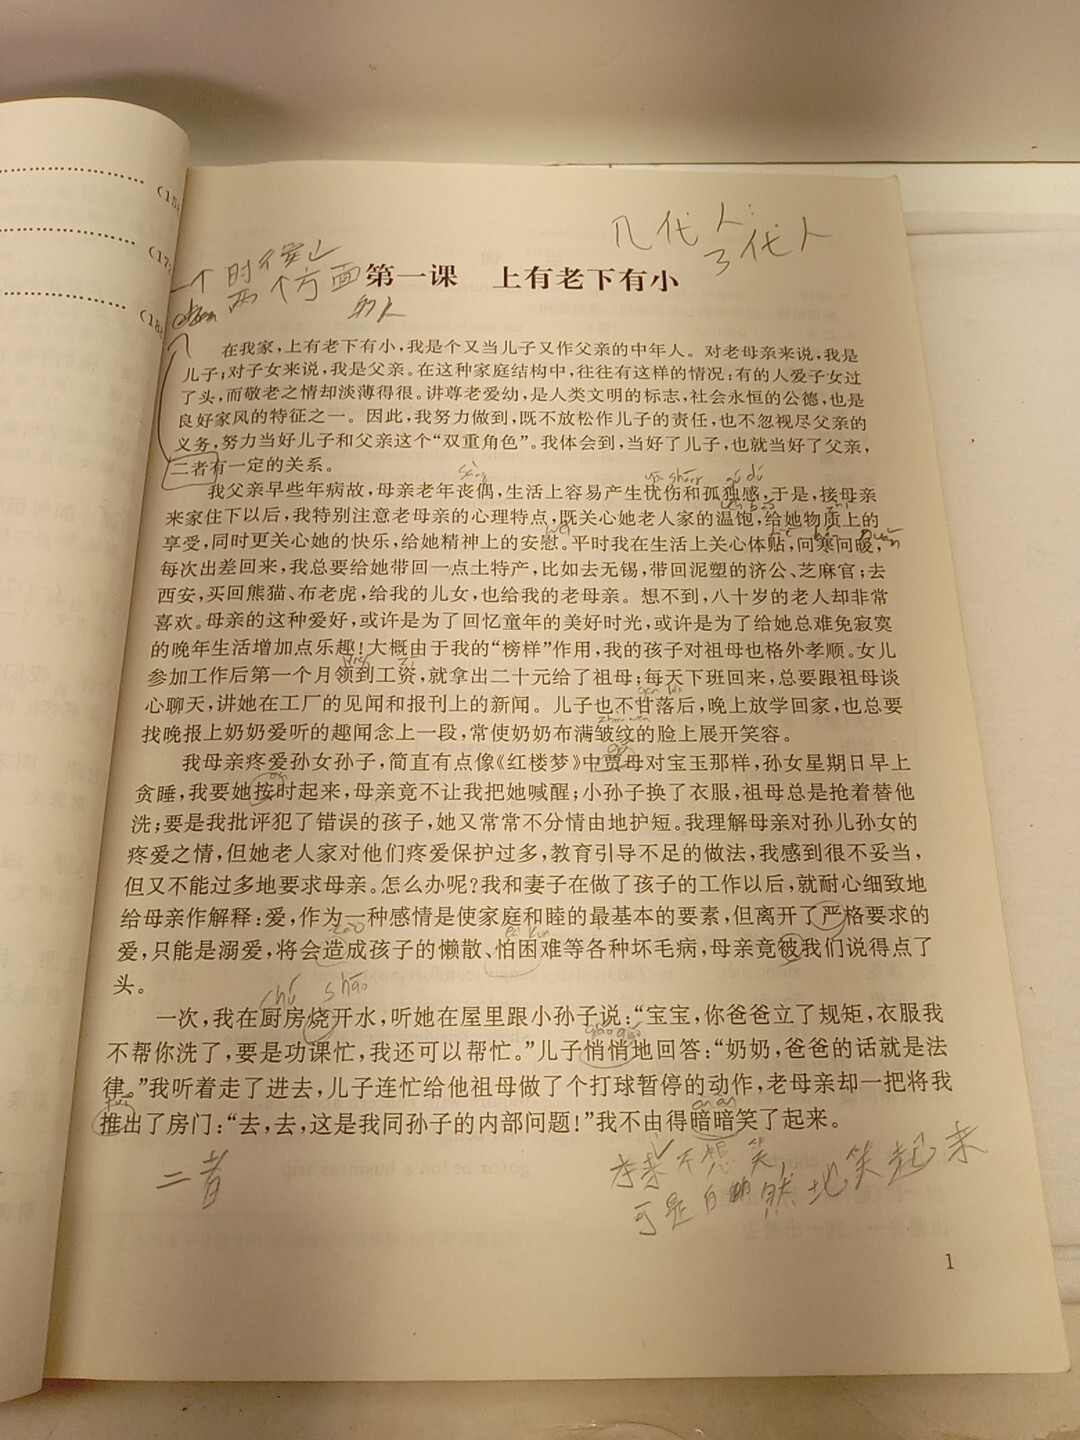 (15
(17
(18
几代人：
3代人
一个时候
两个方面
的人
第一课 上有老下有小
在我家，上有老下有小，我是个又当儿子又作父亲的中年人。对老母亲来说，我是
儿子；对子女来说，我是父亲。在这种家庭结构中，往往有这样的情况：有的人爱子女过
了头，而敬老之情却淡薄得很。讲尊老爱幼，是人类文明的标志，社会永恒的公德，也是
良好家风的特征之一。因此，我努力做到，既不放松作儿子的责任，也不忽视尽父亲的
义务，努力当好儿子和父亲这个“双重角色”。我体会到，当好了儿子，也就当好了父亲，
二者有一定的关系。
sàng yōu shāng gū dú
我父亲早些年病故，母亲老年丧偶，生活上容易产生忧伤和孤独感，于是，接母亲
wēn bǎo zhì
来家住下以后，我特别注意老母亲的心理特点，既关心她老人家的温饱，给她物质上的
wèi tiē hán nuǎn
享受，同时更关心她的快乐，给她精神上的安慰。平时我在生活上关心体贴，问寒问暖，
每次出差回来，我总要给她带回一点土特产，比如去无锡，带回泥塑的济公、芝麻官；去
西安，买回熊猫、布老虎，给我的儿女，也给我的老母亲。想不到，八十岁的老人却非常
喜欢。母亲的这种爱好，或许是为了回忆童年的美好时光，或许是为了给她总难免寂寞
的晚年生活增加点乐趣！大概由于我的“榜样”作用，我的孩子对祖母也格外孝顺。女儿
lǐng zī
参加工作后第一个月领到工资，就拿出二十元给了祖母；每天下班回来，总要跟祖母谈
心聊天，讲她在工厂的见闻和报刊上的新闻。儿子也不甘落后，晚上放学回家，也总要
zhou wen
找晚报上奶奶爱听的趣闻念上一段，常使奶奶布满皱纹的脸上展开笑容。
我母亲疼爱孙女孙子，简直有点像《红楼梦》中贾母对宝玉那样，孙女星期日早上
àn
贪睡，我要她按时起来，母亲竟不让我把她喊醒；小孙子换了衣服，祖母总是抢着替他
洗；要是我批评犯了错误的孩子，她又常常不分情由地护短。我理解母亲对孙儿孙女的
疼爱之情，但她老人家对他们疼爱保护过多，教育引导不足的做法，我感到很不妥当，
但又不能过多地要求母亲。怎么办呢？我和妻子在做了孩子的工作以后，就耐心细致地
给母亲作解释：爱，作为一种感情是使家庭和睦的最基本的要素，但离开了严格要求的
zào kùn
爱，只能是溺爱，将会造成孩子的懒散、怕困难等各种坏毛病，母亲竟被我们说得点了
头。
chú shāo
一次，我在厨房烧开水，听她在屋里跟小孙子说：“宝宝，你爸爸立了规矩，衣服我
qiāo qiāo
不帮你洗了，要是功课忙，我还可以帮忙。”儿子悄悄地回答：“奶奶，爸爸的话就是法
律。”我听着走了进去，儿子连忙给他祖母做了个打球暂停的动作，老母亲却一把将我
tuī àn àn
推出了房门：“去，去，这是我同孙子的内部问题！”我不由得暗暗笑了起来。
二者
本来不想笑
可是自然地笑起来
1